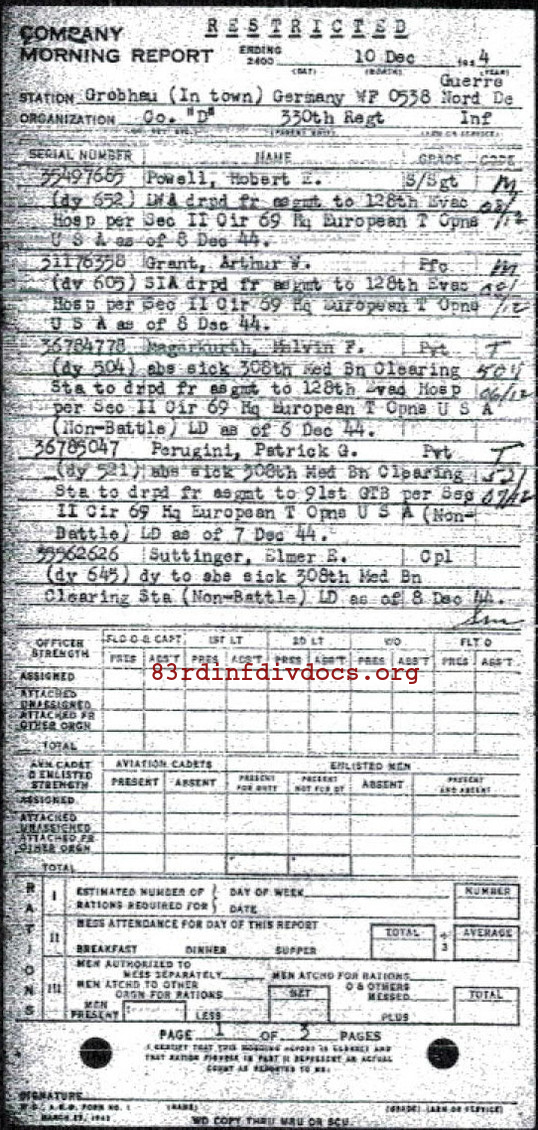 RESTRICTED
COMPANY
MORNING REPORT ENDING 2400 10 Dec 194 4
(DAY) (MONTH) (YEAR)
Guerre
STATION Grobhau (In town) Germany WF 0538 Nord De
ORGANIZATION Co. "D" 330th Regt Inf
SERIAL NUMBER NAME GRADE CODE
35497685 Powell, Hobert E. S/Sgt M
(dy 652) LWA drpd fr asgmt to 128th Evac
Hosp per Sec II Cir 69 Hq European T Opns
U S A as of 8 Dec 44.
31176358 Grant, Arthur W. Pfc M
(dy 605) SIA drpd fr asgmt to 128th Evac
Hosp per Sec II Cir 69 Hq European T Opns
U S A as of 8 Dec 44.
36784778 Melvin F. Pvt T
(dy 504) abs sick 308th Med Bn Clearing 504
Sta to drpd fr asgmt to 128th Evad Hosp 06/12
per Sec II Cir 69 Hq European T Opns U S A
(Non-Battle) LD as of 6 Dec 44.
36785047 Perugini, Patrick G. Pvt T
(dy 521) abs sick 308th Med Bn Clearing 521
Sta to drpd fr asgmt to 91st GTB per Sec 07/12
II Cir 69 Hq European T Opns U S A (Non-
Battle) LD as of 7 Dec 44.
35562626 Suttinger, Elmer E. Cpl
(dy 645) dy to abs sick 308th Med Bn
Clearing Sta (Non-Battle) LD as of 8 Dec 44.
OFFICER STRENGTH FLD O & CAPT 1ST LT 2D LT WO FLT O
PRES ABS'T PRES ABS'T PRES ABS'T PRES ABS'T PRES ABS'T
83rdinfdivdocs.org
ASSIGNED
ATTACHED UNASSIGNED
ATTACHED FR OTHER ORGN
TOTAL
AVN CADET & ENLISTED STRENGTH AVIATION CADETS ENLISTED MEN
PRESENT ABSENT PRESENT FOR DUTY PRESENT NOT FOR DY ABSENT PRESENT AND ABSENT
ASSIGNED
ATTACHED UNASSIGNED
ATTACHED FR OTHER ORGN
TOTAL
RATIONS
I ESTIMATED NUMBER OF RATIONS REQUIRED FOR DAY OF WEEK DATE NUMBER
II MESS ATTENDANCE FOR DAY OF THIS REPORT TOTAL ÷ 3 AVERAGE
BREAKFAST DINNER SUPPER
III MEN AUTHORIZED TO MESS SEPARATELY MEN ATCHD FOR RATIONS
MEN ATCHD TO OTHER ORGN FOR RATIONS NET O & OTHERS MESSED TOTAL
MEN PRESENT LESS PLUS
PAGE 1 OF 3 PAGES
I CERTIFY THAT THIS MORNING REPORT IS CORRECT AND
THAT RATION FIGURES IN PART II REPRESENT AN ACTUAL
COUNT AS REPORTED TO ME:
SIGNATURE
W.D., A.G.O. FORM NO. 1 (NAME) (GRADE) (ARM OR SERVICE)
MARCH 23, 1943
WD COPY THRU MRU OR SCU.